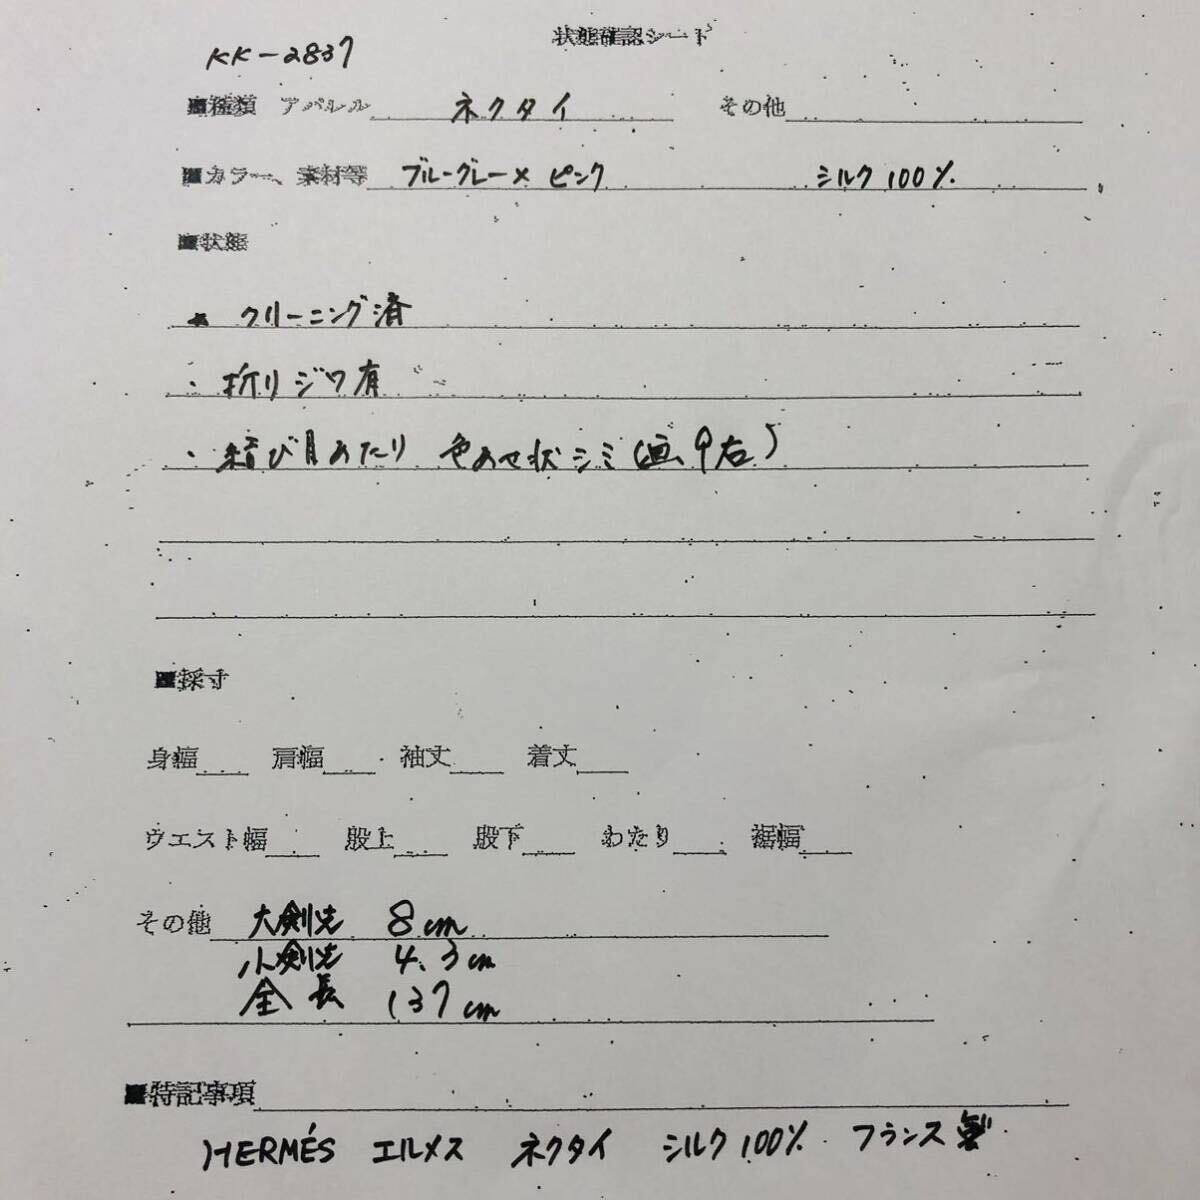 状態確認シート
KK-2837
■種類 アパレル ネクタイ その他
■カラー、素材等 ブルーグレー×ピンク シルク100%
■状態
・クリーニング済
・折りジワ有
・結び目あたり 色あせ状シミ(画、9右)
■採寸
身幅 肩幅 袖丈 着丈
ウエスト幅 股上 股下 わたり 裾幅
その他 大剣先 8cm
小剣先 4.3cm
全長 137cm
■特記事項
HERMÉS エルメス ネクタイ シルク100% フランス製